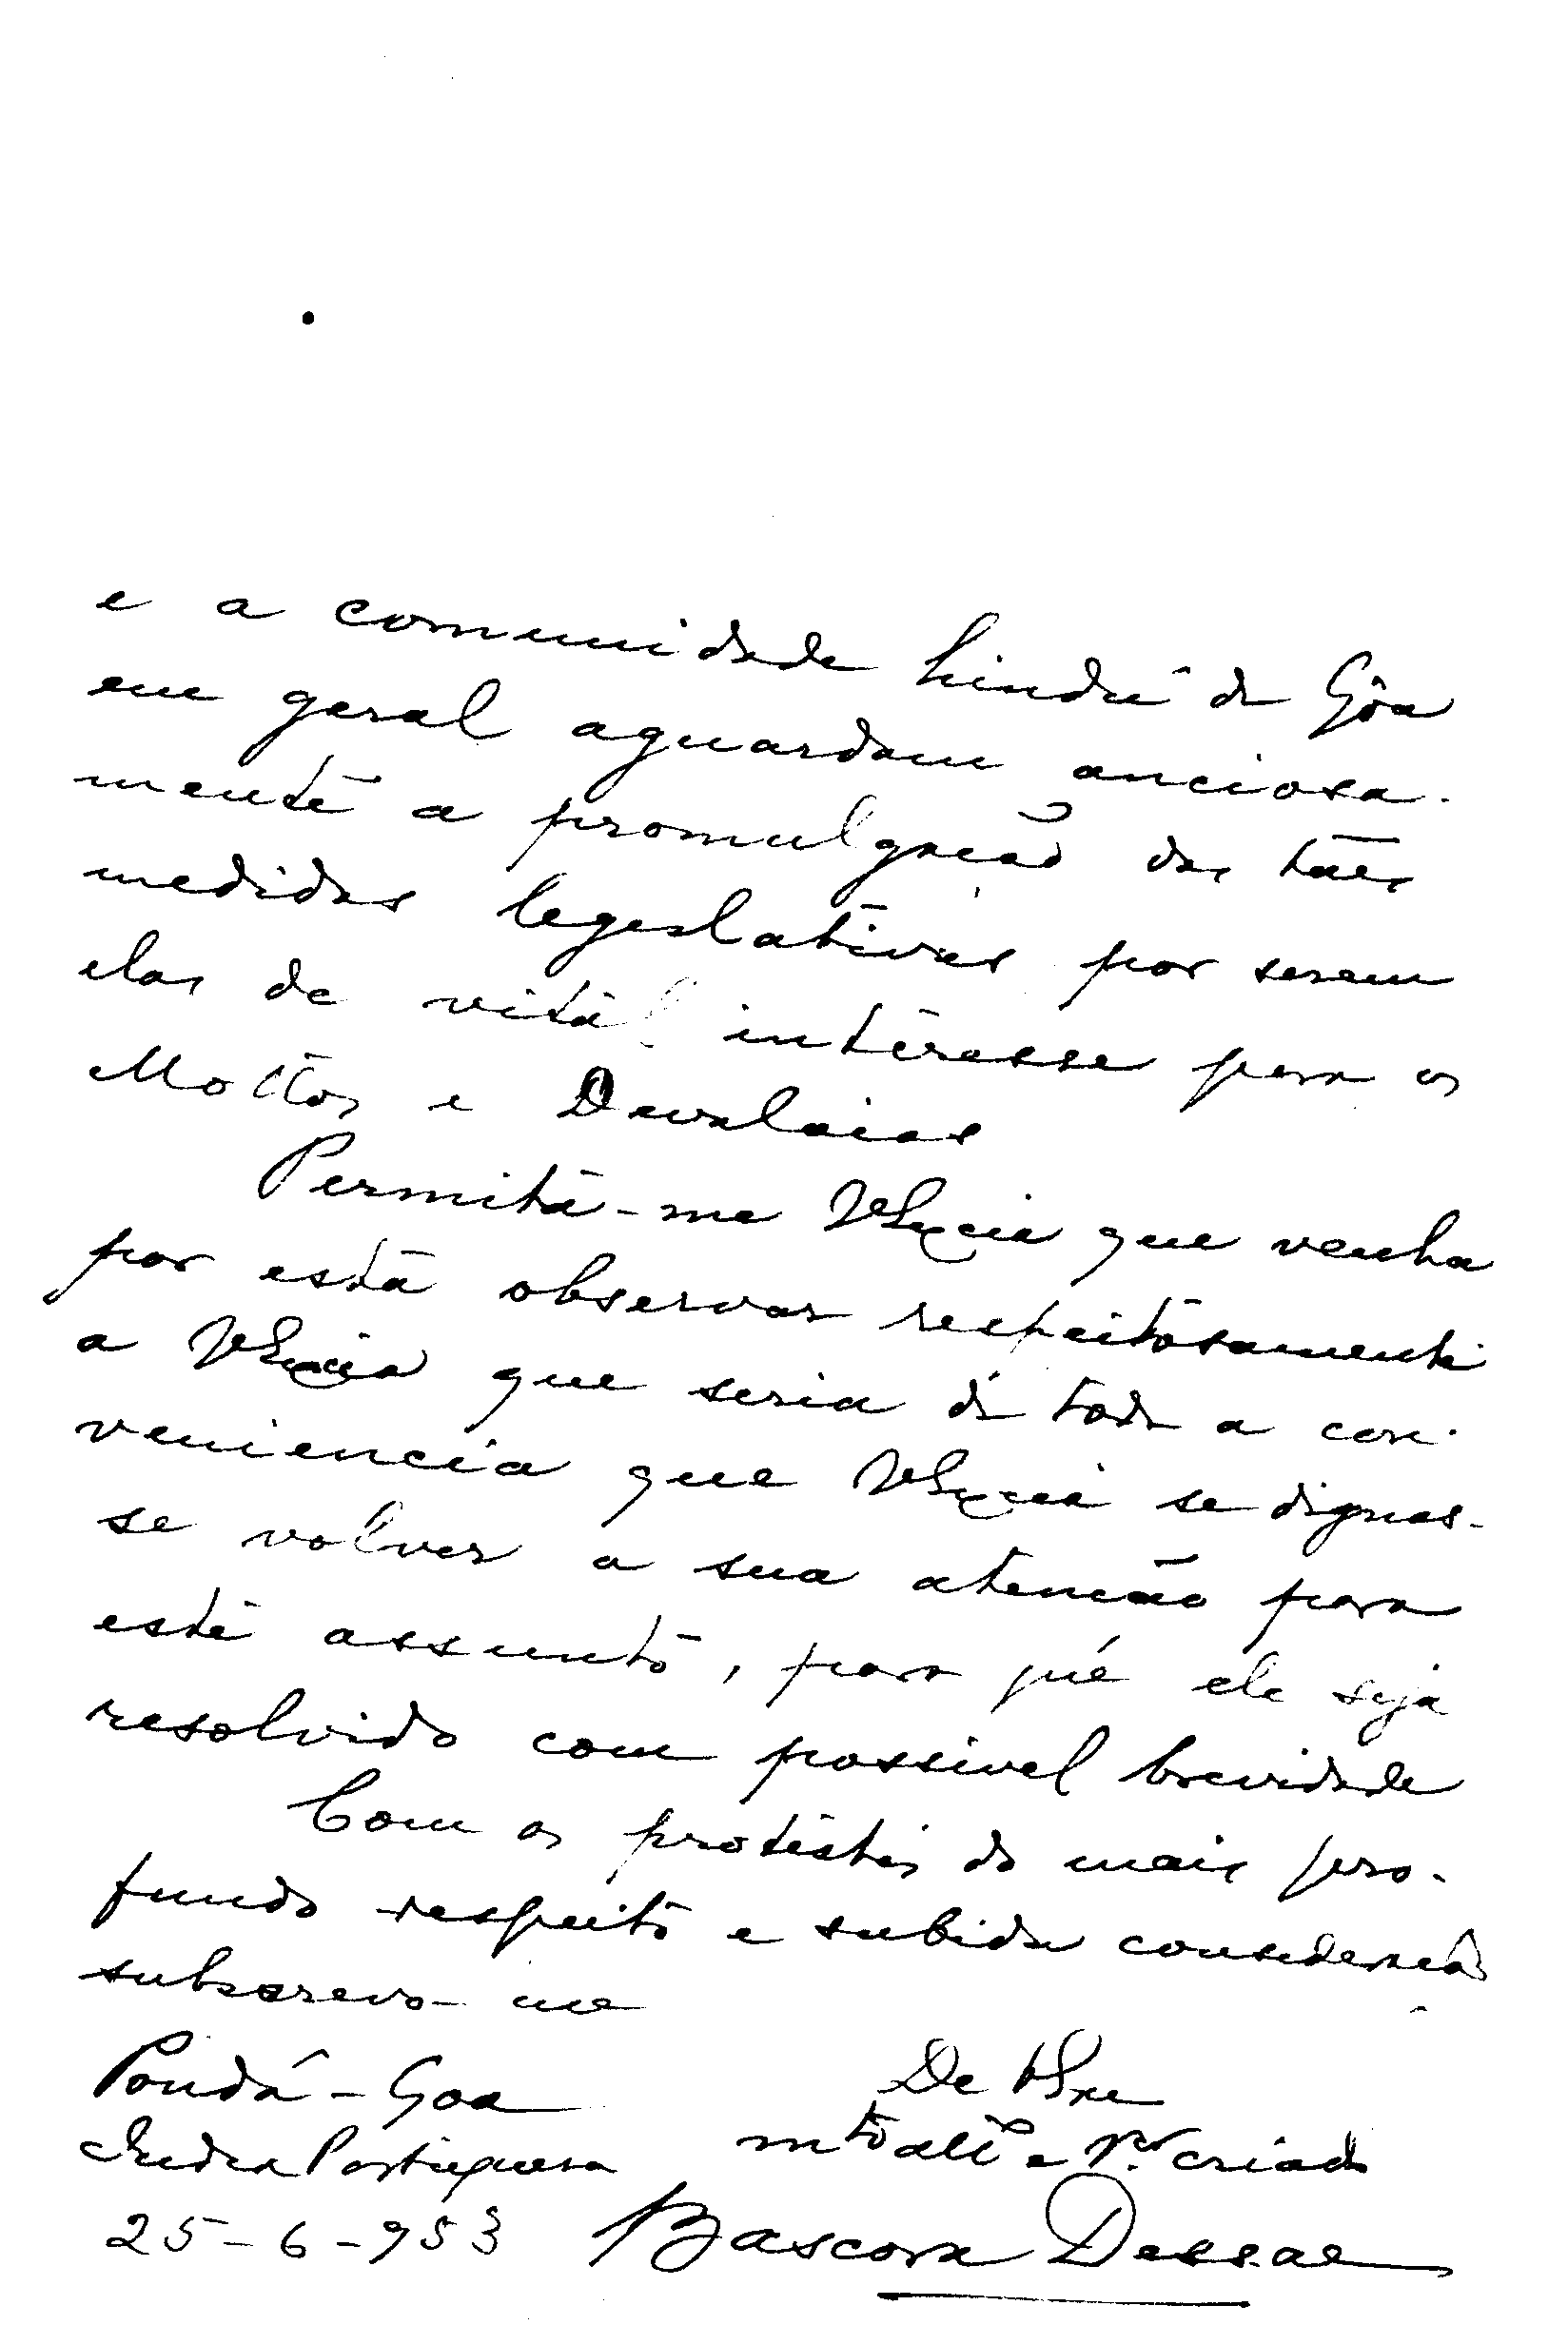 e a comunidade hindú de Gôa
em geral aguardam anciosa-
mente a promulgação das tães
medidas legeslativas por serem
elas de vital interesse para os
Mottos e Devalaias
Permita-me VExcia que venha
por esta observar respeitosamente
a VExcia que seria de toda a con-
veniencia que VExcia se dignas-
se volver a sua atenção para
este assunto, para que ele seja
resolvido com possivel brevidade
Com os protestos do mais pro-
fundo respeito e subida consideração
subscrevo-me
Pondá - Goa
India Portuguesa
25-6-953
De VExe
mto atto e Vor criado
Bascora Dessae